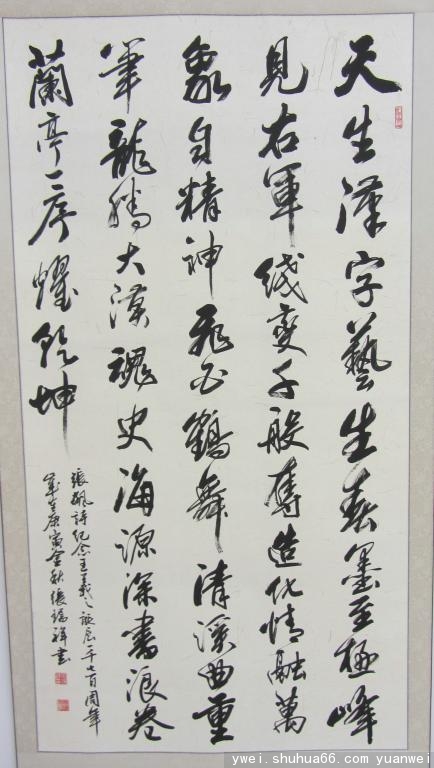 天生漢字藝生春墨至極峰
見右軍線變千般奪造化情融萬
象自精神飛白鶴舞清溪曲重
筆龍騰大漠魂史海源深書浪卷
蘭亭一序耀乾坤
張飈詩紀念王羲之誕辰一千七百周年
歲在庚寅金秋張瑞祥書
ywei.shuhua66.com yuanwei